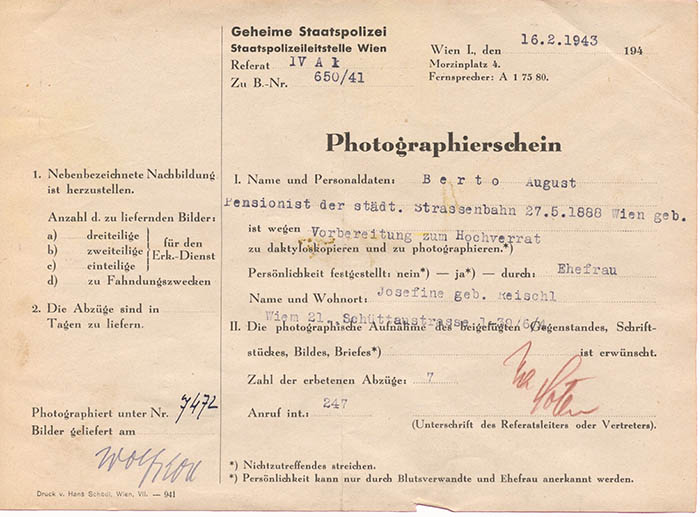 Geheime Staatspolizei
Staatspolizeileitstelle Wien
Referat IV A 1
Zu B.-Nr. 650/41
Wien I., den 16.2.1943 194
Morzinplatz 4.
Fernsprecher: A 1 75 80.
Photographierschein
1. Nebenbezeichnete Nachbildung
ist herzustellen.
Anzahl d. zu liefernden Bilder:
a) dreiteilige
b) zweiteilige
c) einteilige
für den
Erk.-Dienst
d) zu Fahndungszwecken
2. Die Abzüge sind in
Tagen zu liefern.
Photographiert unter Nr. 7472
Bilder geliefert am
I. Name und Personaldaten: Berto August
Pensionist der städt. Strassenbahn 27.5.1888 Wien geb.
ist wegen Vorbereitung zum Hochverrat
zu daktyloskopieren und zu photographieren.*)
Persönlichkeit festgestellt: nein*) — ja*) — durch: Ehefrau
Name und Wohnort: Josefine geb. Reischl
Wiem 21. Schüttaustrasse
II. Die photographische Aufnahme des beigefügten Gegenstandes, Schrift-
stückes, Bildes, Briefes*) ist erwünscht.
Zahl der erbetenen Abzüge: 7
Anruf int.: 247
(Unterschrift des Referatsleiters oder Vertreters).
*) Nichtzutreffendes streichen.
*) Persönlichkeit kann nur durch Blutsverwandte und Ehefrau anerkannt werden.
Druck v. Hans Schödl, Wien, VII. — 941